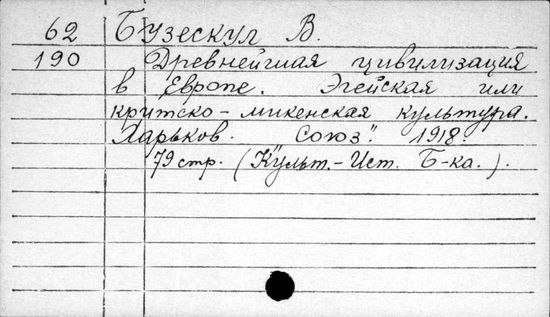 62 Бузескул В.
190 Древнейшая цивилизация
в Европе. Эгейская или
критско-микенская культура.
Харьков. "Союз". 1918.
79 стр. (Культ.-Ист. Б-ка.).